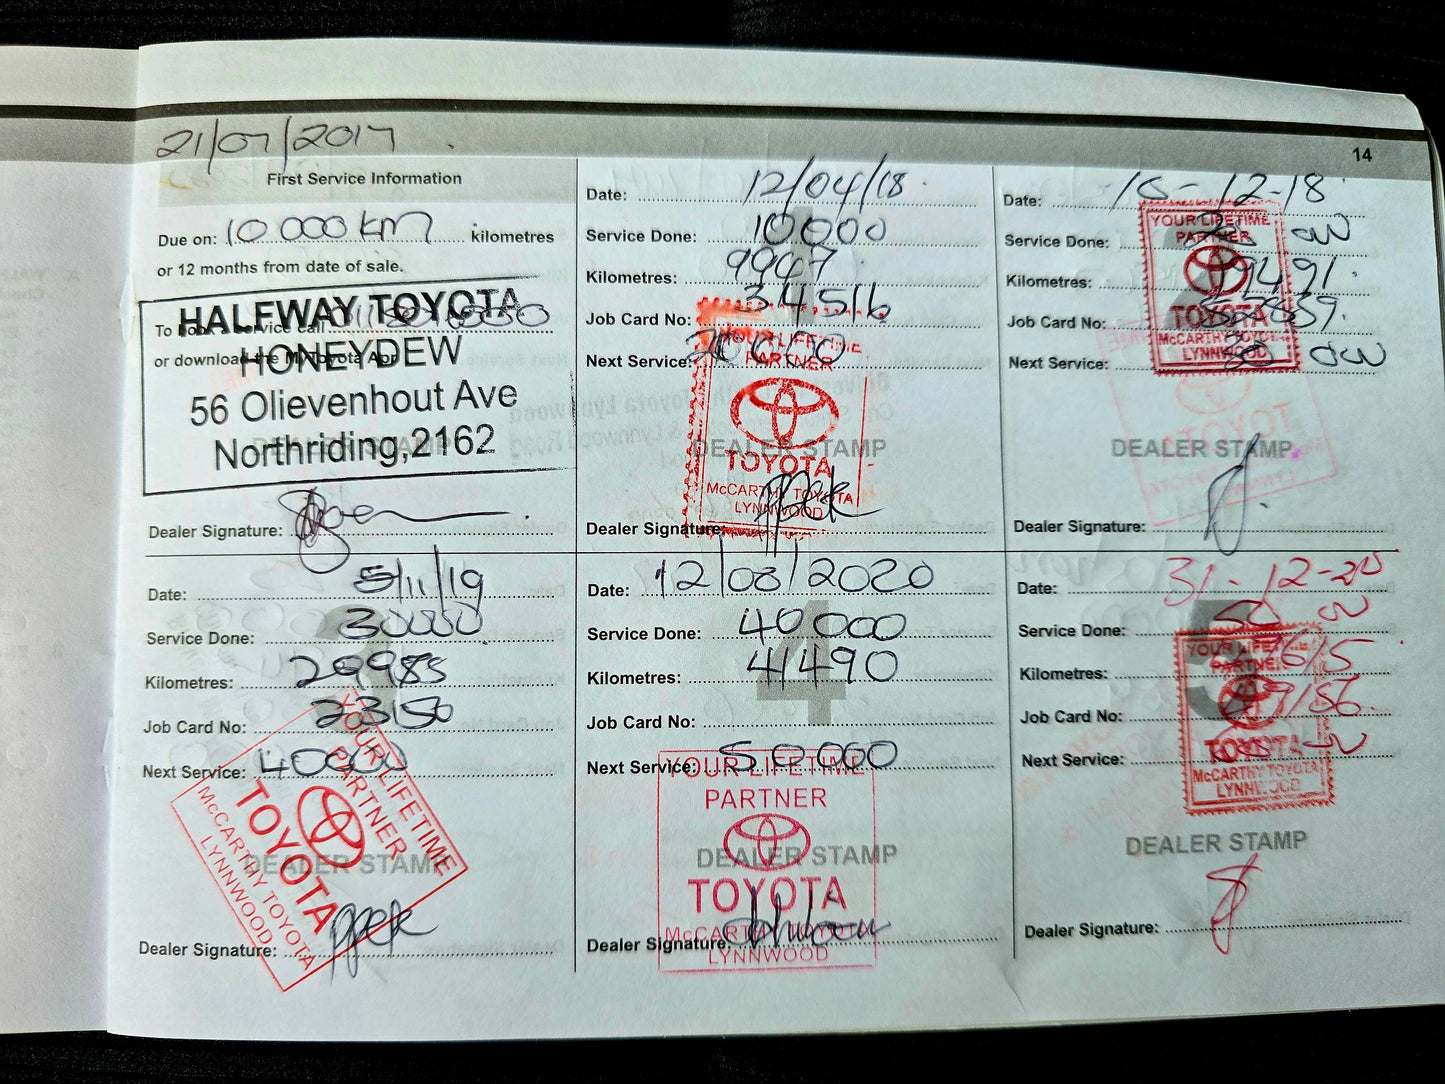 21/07/2017
14
First Service Information
Due on: 10 000 km kilometres
or 12 months from date of sale.
To book a service call
or download the MyToyota App
HALFWAY TOYOTA
HONEYDEW
56 Olievenhout Ave
Northriding,2162
Dealer Signature:
Date: 12/04/18
Service Done: 10000
Kilometres: 9947
Job Card No: 34516
Next Service: 20000
YOUR LIFETIME
PARTNER
DEALER STAMP
TOYOTA
McCARTHY TOYOTA
LYNNWOOD
Dealer Signature:
Date: 10-12-18
Service Done:
Kilometres: 19491
Job Card No:
Next Service:
YOUR LIFETIME
PARTNER
TOYOTA
McCARTHY TOYOTA
LYNNWOOD
DEALER STAMP
Dealer Signature:
Date: 5/11/19
Service Done: 30000
Kilometres: 29985
Job Card No: 23150
Next Service: 40000
YOUR LIFETIME
PARTNER
TOYOTA
McCARTHY TOYOTA
LYNNWOOD
DEALER STAMP
Dealer Signature:
4
Date: 12/08/2020
Service Done: 40000
Kilometres: 41490
Job Card No:
Next Service: 50000
YOUR LIFETIME
PARTNER
DEALER STAMP
TOYOTA
McCARTHY TOYOTA
LYNNWOOD
Dealer Signature:
5
Date: 31-12-20
Service Done:
Kilometres:
Job Card No:
Next Service:
YOUR LIFETIME
PARTNER
TOYOTA
McCARTHY TOYOTA
LYNNWOOD
DEALER STAMP
Dealer Signature: